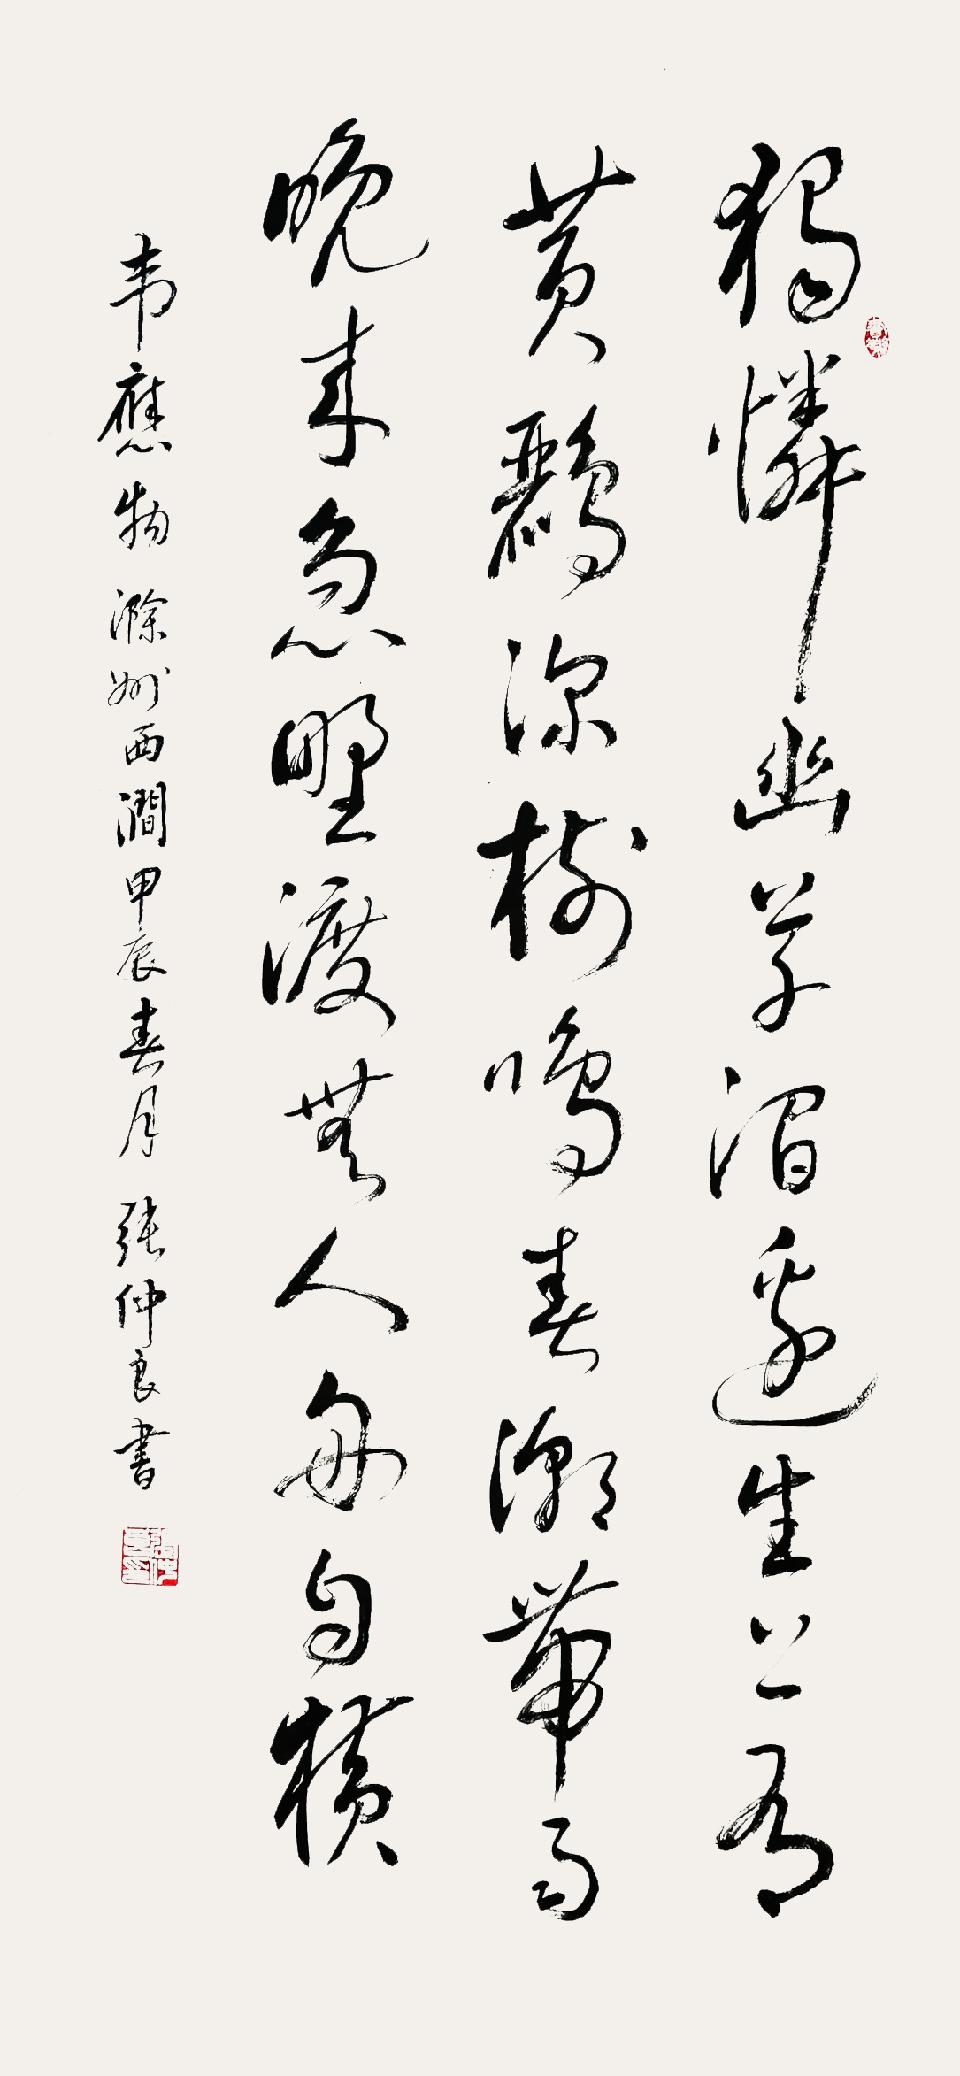 獨憐幽草澗邊生上有
黄鸝深樹鳴春潮帶雨
晚来急野渡無人舟自橫
韦應物滁州西澗甲辰春月張仲良書